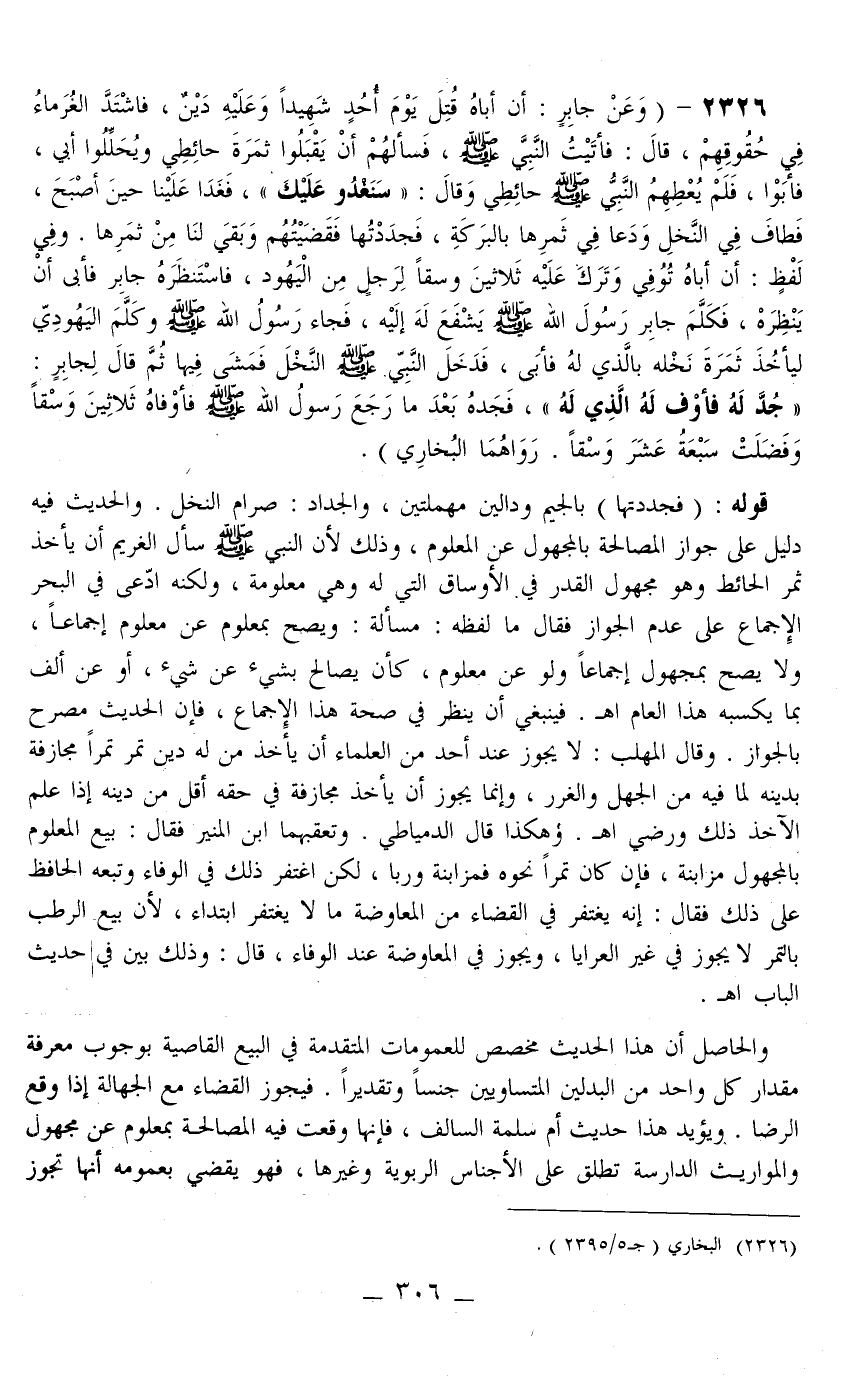 ٢٣٢٦ - ( وَعَنْ جابِرٍ : أن أباهُ قُتِلَ يَوْمَ أُحُدٍ شَهِيداً وَعَلَيْهِ دَيْنٌ ، فاشْتَدَّ الغُرَماءُ
فِي حُقُوقِهِمْ ، قالَ : فأتَيْتُ النَّبِيَّ ﷺ ، فَسألهُمْ أنْ يَقْبَلُوا ثمَرَةَ حائطِي ويُحَلِّلُوا أبي ،
فأبَوْا ، فَلَمْ يُعْطِهِمُ النَّبِيُّ ﷺ حائِطِي وَقالَ : « سَنَغْدُو عَلَيْكَ » ، فَغَدَا عَلَيْنا حينَ أصْبَحَ ،
فَطافَ فِي النَّخلِ وَدَعا فِي ثَمرِها بالبَركَةِ ، فَجدَدْتُها فَقَضَيْتُهُم وَبَقيَ لنَا مِنْ ثمَرِها . وفِي
لَفْظٍ : أن أباهُ تُوُفِي وَتَرَكَ عَلَيْه ثَلاثينَ وسقاً لِرَجلٍ مِن الْيَهُود ، فاسْتَنظَرَهُ جابِر فأبى أنْ
يَنْظِرَهْ ، فَكَلَّمَ جابِر رَسُولَ الله ﷺ يَشْفَعَ لَهُ إلَيْه ، فَجاء رَسُولُ الله ﷺ وكَلَّمَ اليَهُودِيّ
ليأخُذَ ثَمَرَةَ نَخْله بالَّذي لهُ فأبَى ، فَدَخَلَ النَّبِيّ ﷺ النَّخْلَ فَمَشَى فِيها ثُمَّ قالَ لِجابِرٍ :
« جُدَّ لَهُ فأوْفِ لَهُ الَّذِي لَهُ » ، فَجَدهُ بَعْدَ ما رَجَعَ رَسولُ الله ﷺ فأوْفاهُ ثَلاثِينَ وَسْقاً
وَفَضَلَتْ سَبْعَةُ عَشَرَ وَسْقاً . رَوَاهُمَا البُخارِي ) .
قوله : ( فجددتها ) بالجيم ودالين مهملتين ، والجداد : صرام النخل . والحديث فيه
دليل على جواز المصالحة بالمجهول عن المعلوم ، وذلك لأن النبي ﷺ سأل الغريم أن يأخذ
ثمر الحائط وهو مجهول القدر في الأوساق التي له وهي معلومة ، ولكنه ادّعى في البحر
الإجماع على عدم الجواز فقال ما لفظه : مسألة : ويصح بمعلوم عن معلوم إجماعاً ،
ولا يصح بمجهول إجماعاً ولو عن معلوم ، كأن يصالح بشيء عن شيء ، أو عن ألف
بما يكسبه هذا العام اهـ . فينبغي أن ينظر في صحة هذا الإجماع ، فإن الحديث مصرح
بالجواز . وقال المهلب : لا يجوز عند أحد من العلماء أن يأخذ من له دين تمر تمراً مجازفة
بدينه لما فيه من الجهل والغرر ، وإنما يجوز أن يأخذ مجازفة في حقه أقل من دينه إذا علم
الآخذ ذلك ورضي اهـ . وُهكذا قال الدمياطي . وتعقبهما ابن المنير فقال : بيع المعلوم
بالمجهول مزابنة ، فإن كان تمراً نحوه فمزابنة وربا ، لكن اغتفر ذلك في الوفاء وتبعه الحافظ
على ذلك فقال : إنه يغتفر في القضاء من المعاوضة ما لا يغتفر ابتداء ، لأن بيع الرطب
بالتمر لا يجوز في غير العرايا ، ويجوز في المعاوضة عند الوفاء ، قال : وذلك بين في حديث
الباب اهـ .
والحاصل أن هذا الحديث مخصص للعمومات المتقدمة في البيع القاصية بوجوب معرفة
مقدار كل واحد من البدلين المتساويين جنساً وتقديراً . فيجوز القضاء مع الجهالة إذا وقع
الرضا . ويؤيد هذا حديث أم سلمة السالف ، فإنها وقعت فيه المصالحة بمعلوم عن مجهول
والمواريث الدارسة تطلق على الأجناس الربوية وغيرها ، فهو يقضي بعمومه أنها تجوز
(٢٣٢٦) البخاري ( جـ٢٣٩٥/٥ ) .
_ ٣٠٦ _